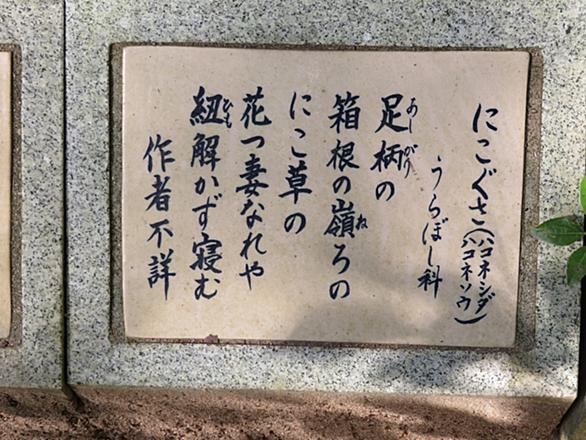 にこぐさ(ハコネシダ ハコネソウ)
うらぼし科
足柄の
箱根の嶺ろの
にこ草の
花つ妻なれや
紐解かず寝む
作者不詳